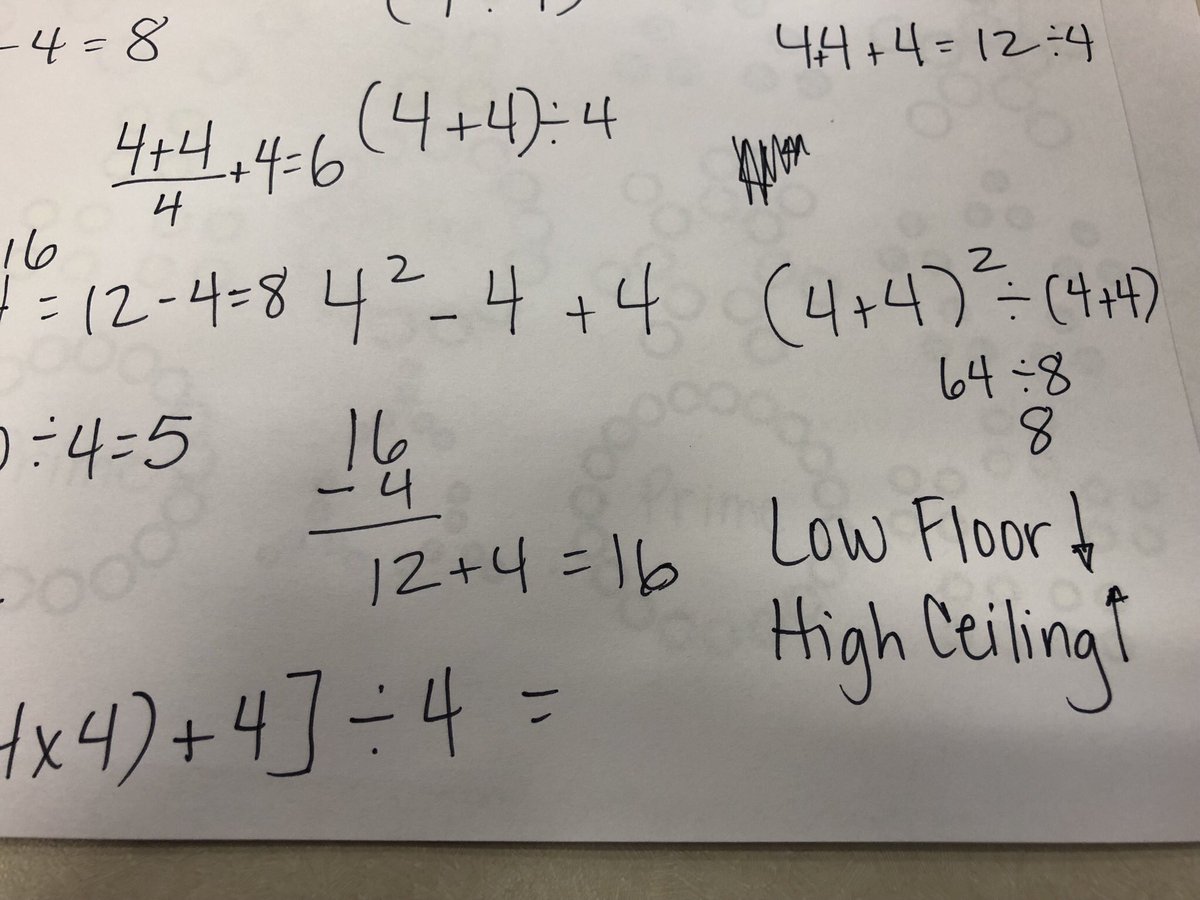 - 4 = 8
4+4+4 = 12 ÷4
4+4
4
+4=6
(4+4)÷4
16
= 12-4=8
4² - 4 + 4
(4+4)² ÷ (4+4)
64 ÷8
8
÷4=5
16
- 4
12+4 = 16
Low Floor ↓
High Ceiling ↑
x4)+4] ÷ 4 =